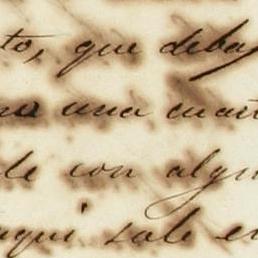 to, que deba
una cuart
de con algun
aqui sale en